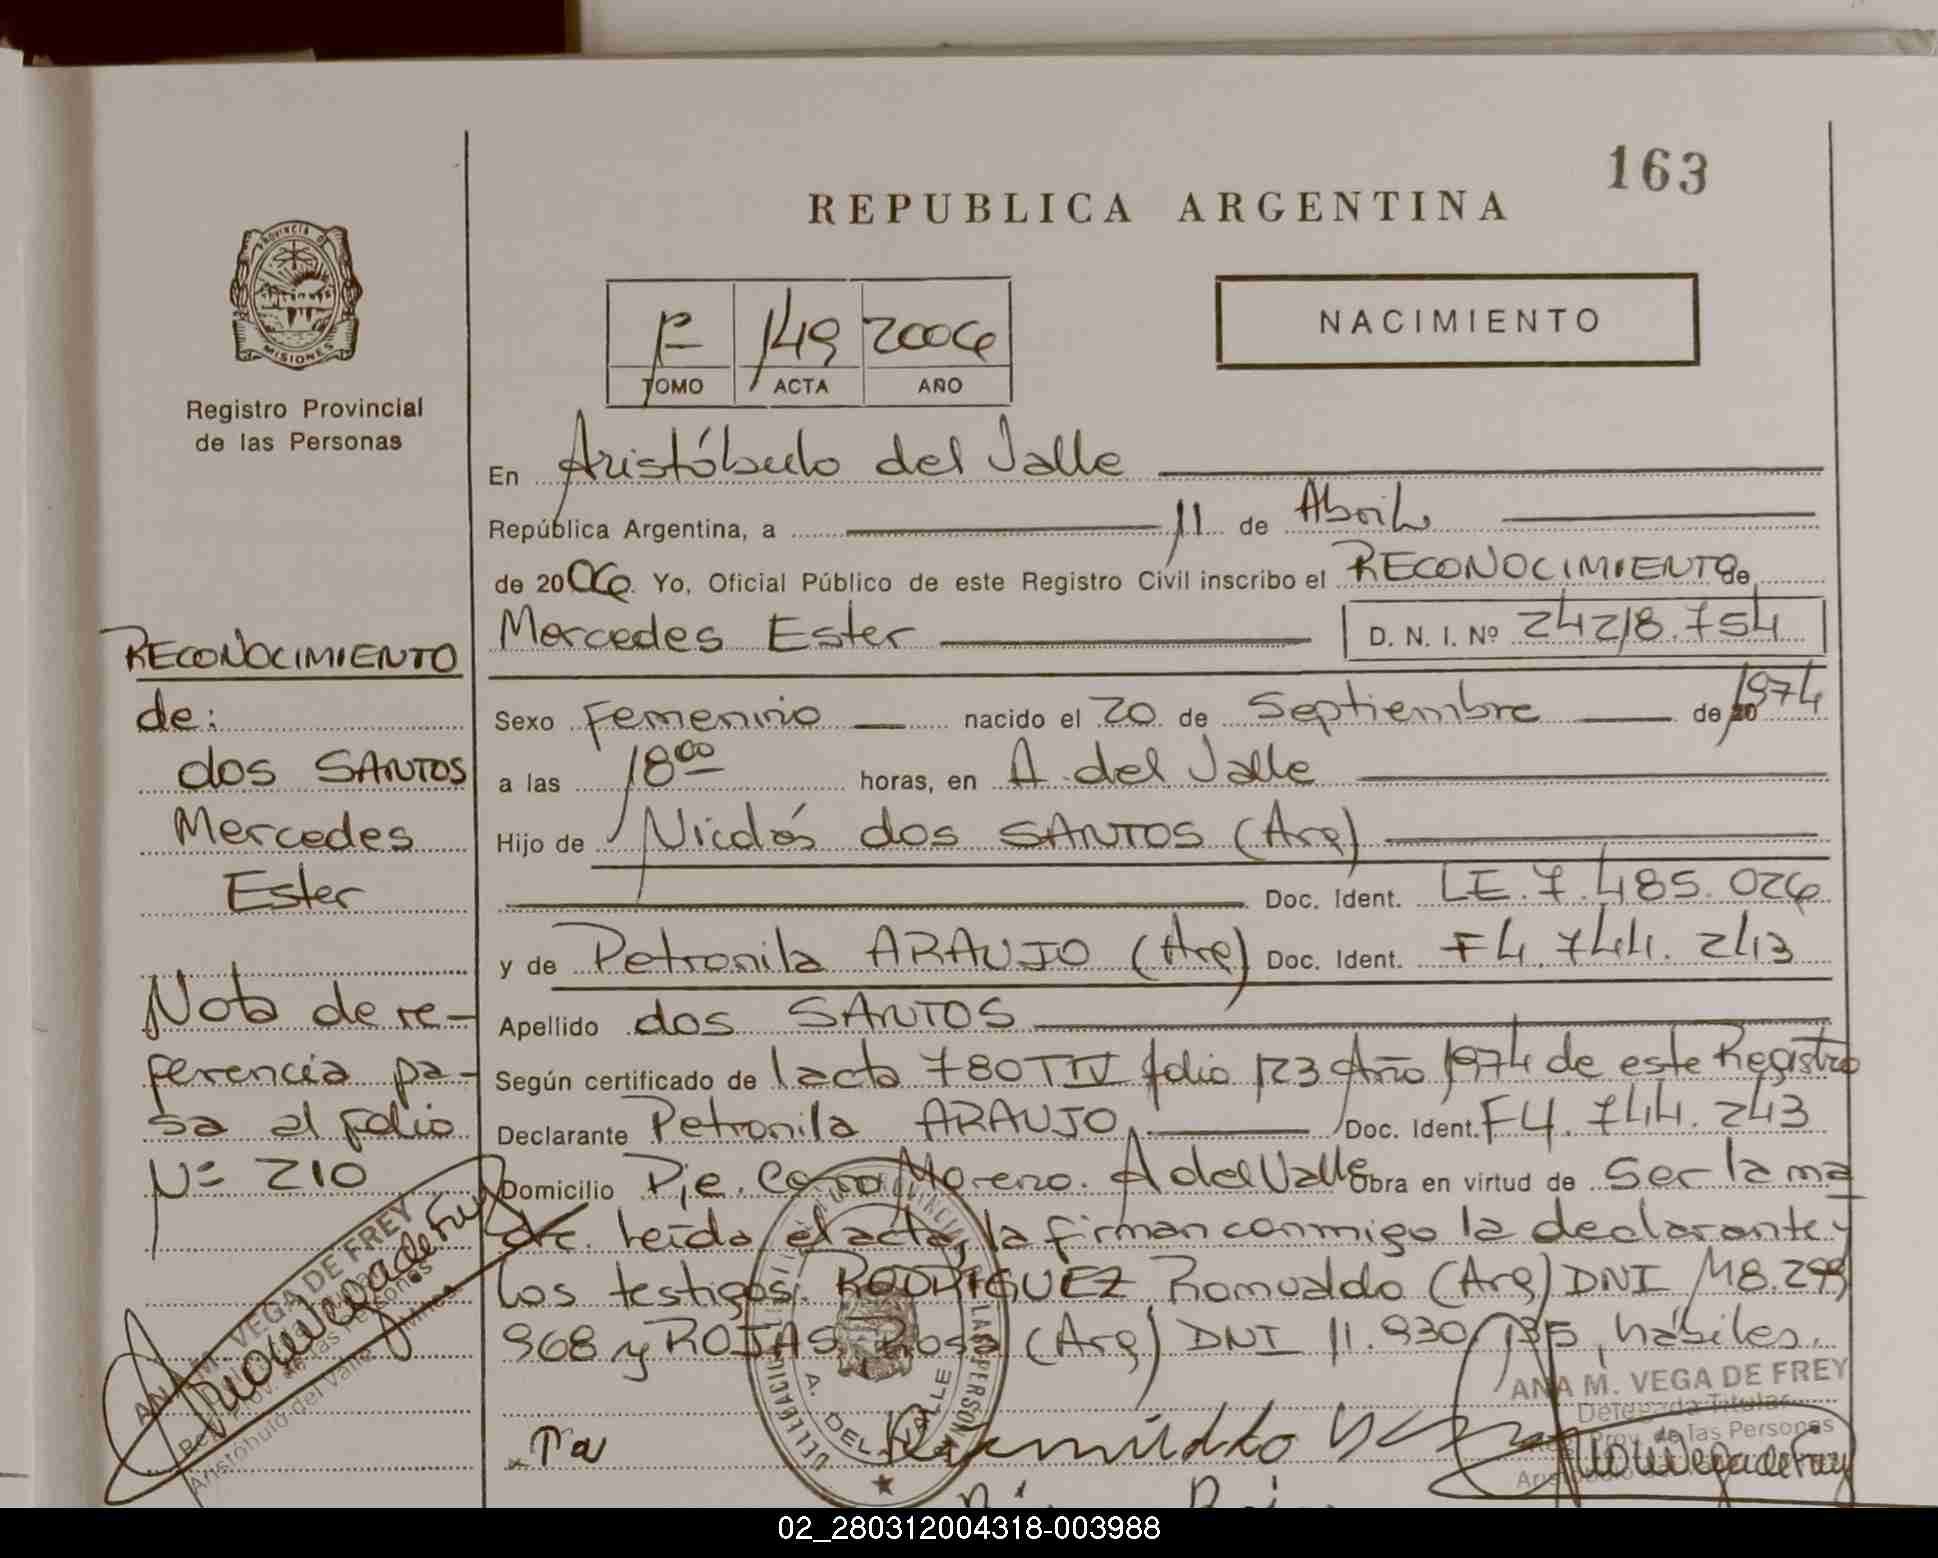 163
REPUBLICA ARGENTINA
PROVINCIA DE
MISIONES
Registro Provincial
de las Personas
1º 149 2006
TOMO ACTA AÑO
NACIMIENTO
En Aristóbulo del Valle
República Argentina, a 11 de Abril
de 2006. Yo, Oficial Público de este Registro Civil inscribo el RECONOCIMIENTO de
Mercedes Ester D. N. I. Nº 24218.754
Sexo Femenino nacido el 20 de Septiembre de 20 1974
a las 18 00 horas, en A. del Valle
Hijo de Nicolás dos SANTOS (Arg)
Doc. Ident. LE. 7.485.026
y de Petronila ARAUJO (Arg) Doc. Ident. F4.744.243
Apellido dos SANTOS
Según certificado de l acta 780 T IV folio 123 Año 1974 de este Registro
Declarante Petronila ARAUJO Doc. Ident. F4.744.243
Domicilio Pje. Moreno. A del Valle obra en virtud de ser la ma
dre. Leída el acta, la firman conmigo la declarante y
los testigos. RODRIGUEZ Romualdo (Arg) DNI M8.299
968 y ROJAS, Rosa (Arg) DNI 11.930.135, hábiles.
RECONOCIMIENTO
de:
dos SANTOS
Mercedes
Ester
Nota de re-
ferencia pa-
sa al folio
Nº 210
ANA M. VEGA DE FREY
Aristóbulo del Valle Mnes.
DELEGACION
A. DEL VALLE
LAS PERSONAS
ANA M. VEGA DE FREY
Delegada Titular
Reg. Prov. de las Personas
02_280312004318-003988